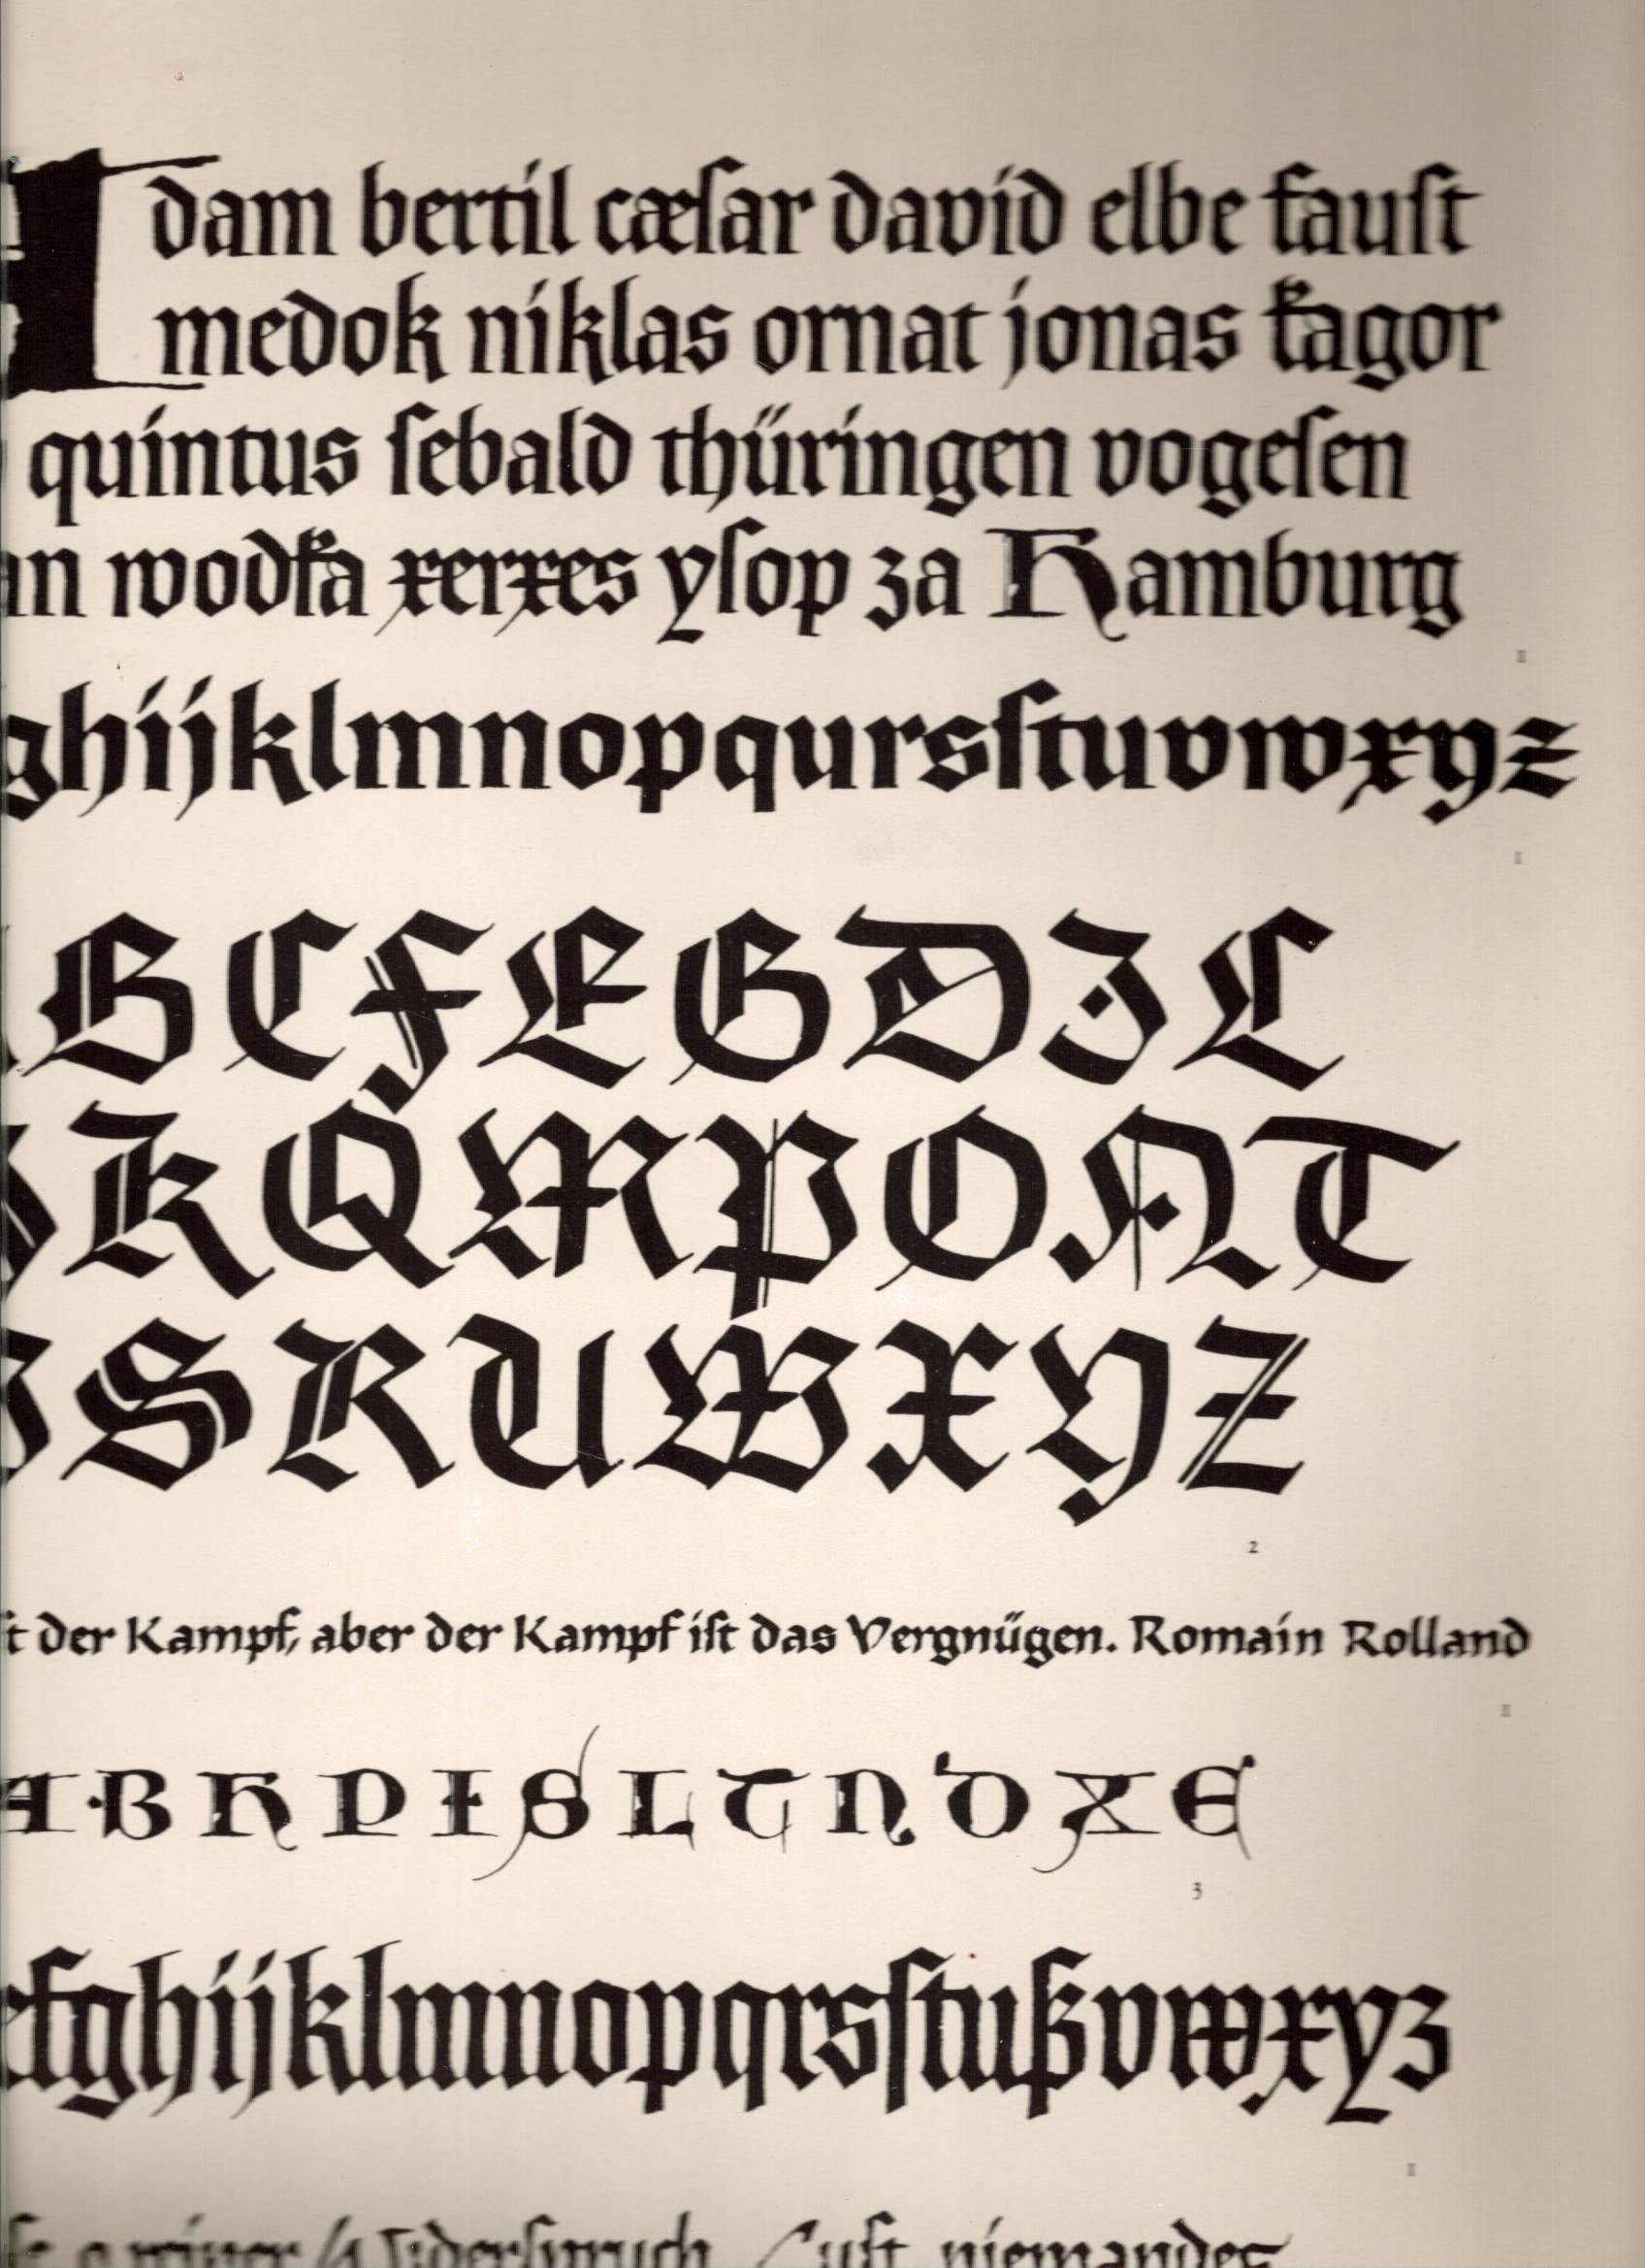 Adam bertil cæſar david elbe fauſt
medok niklas ornat jonas kagor
quintus ſebald thüringen vogeſen
an wodka xerxes yſop za Hamburg
II
ghijklmnopqursſtuvwxyz
I
B C F E G D I L
K Q M P O N T
S R U W X Y Z
2
t der Kampf, aber der Kampf iſt das Vergnügen. Romain Rolland
II
A B H P I S L T N D X E
3
efghijklmnopqrsſtußvwxyz
II
niemandes